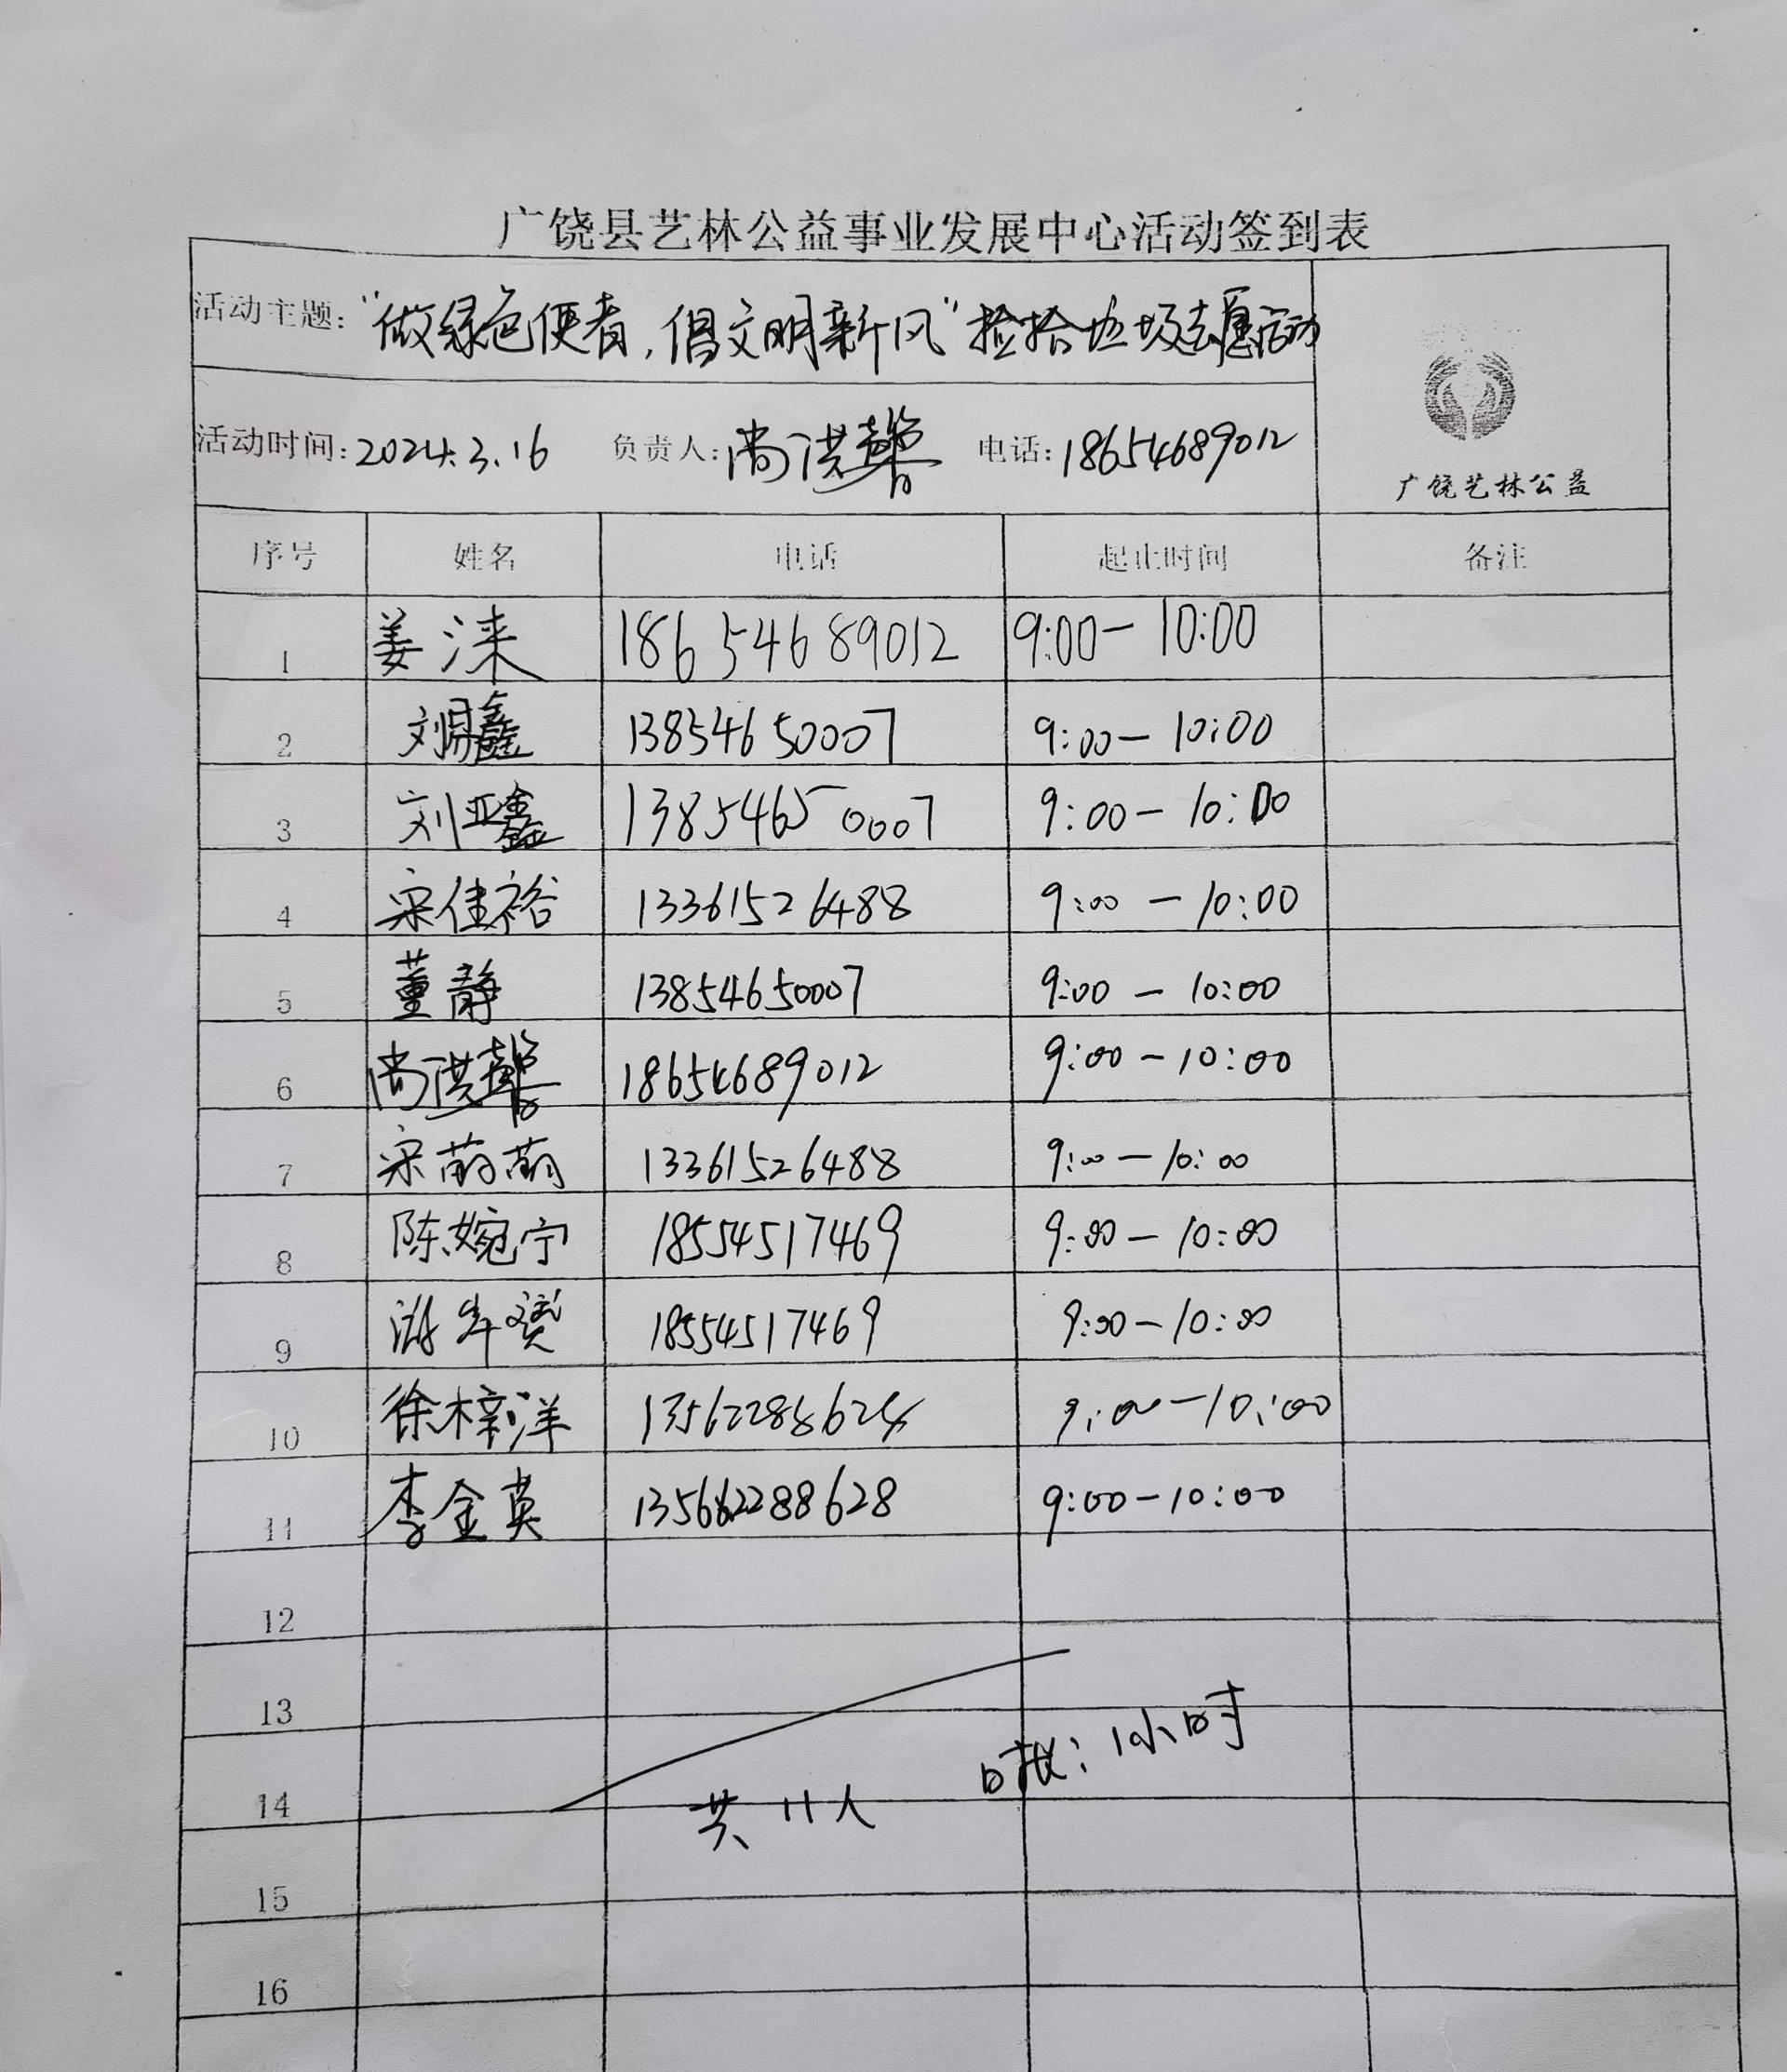 广饶县艺林公益事业发展中心活动签到表
活动主题：“做绿色使者，倡文明新风”捡拾垃圾志愿活动
活动时间：2024.3.16 负责人：尚洪馨 电话：18654689012
广饶艺林公益
序号 姓名 电话 起止时间 备注
1 姜涞 18654689012 9:00-10:00
2 刘易鑫 13854650007 9:00-10:00
3 刘亚鑫 13854650007 9:00-10:00
4 宋佳裕 13361526488 9:00-10:00
5 董静 13854650007 9:00-10:00
6 尚洪馨 18654689012 9:00-10:00
7 宋萌萌 13361526488 9:00-10:00
8 陈婉宁 18554517469 9:00-10:00
9 18554517469 9:00-10:00
10 徐梓洋 9:00-10:00
11 李金英 9:00-10:00
12
13
14
共11人 时长：1小时
15
16